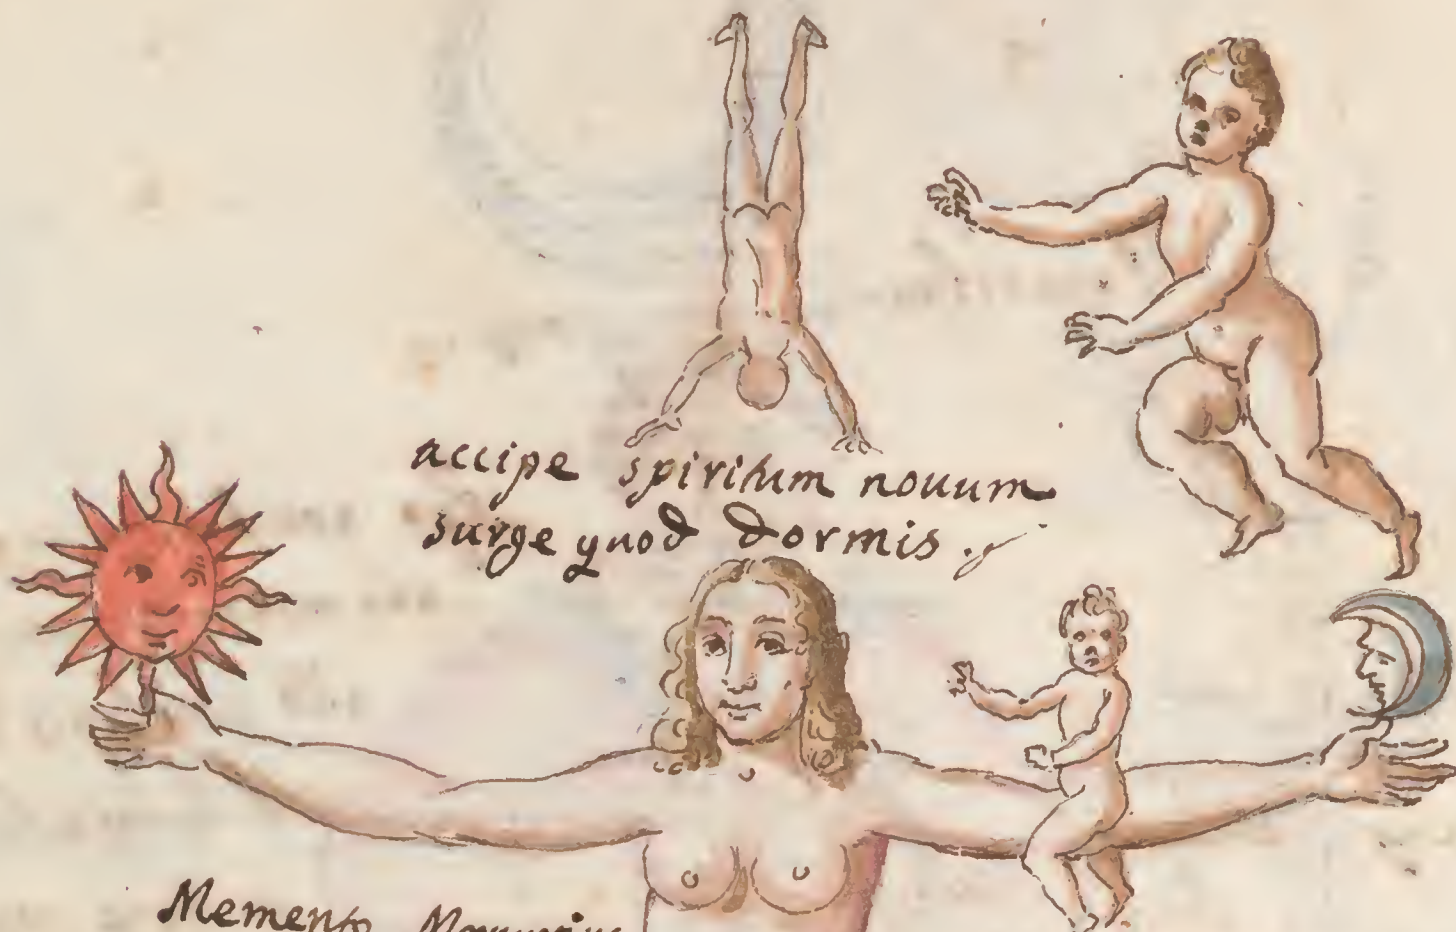 accipe spiritum nouum
surge quod dormis.
Memento